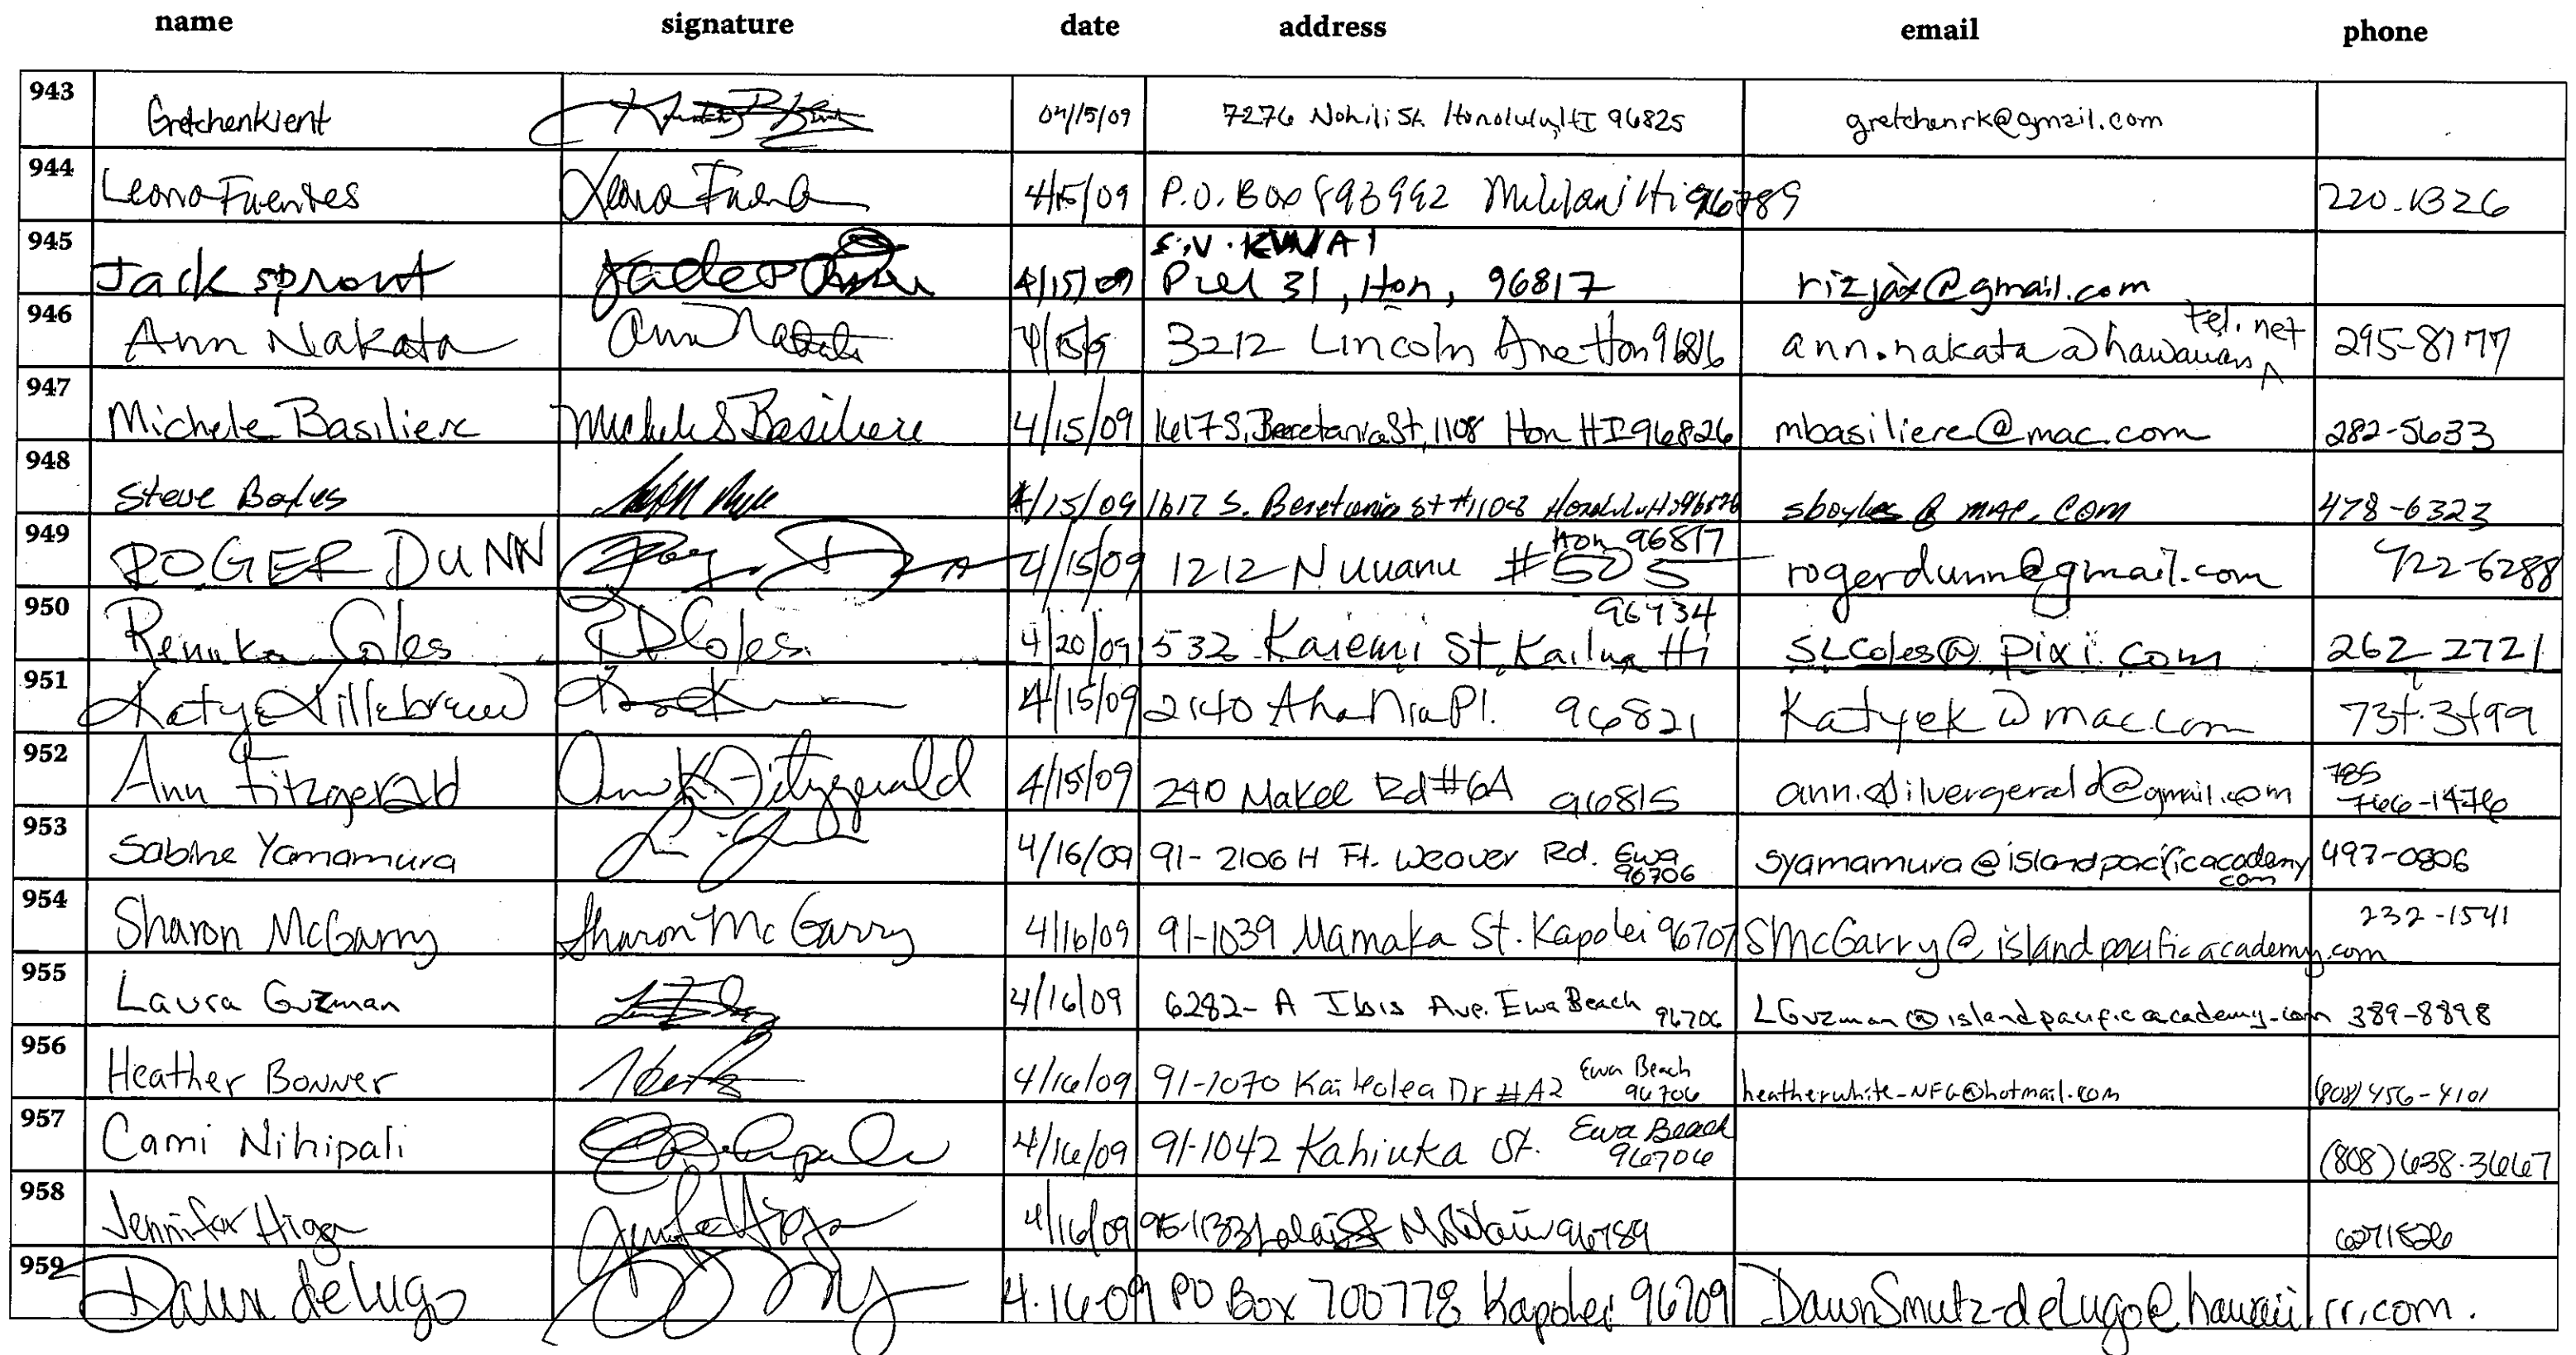 name signature date address email phone
943 Gretchen Kient 04/15/09 7276 Nohili St. Honolulu, HI 96825 gretchenrk@gmail.com
944 Leona Fuentes 4/15/09 P.O. Box 893992 Mililani Hi 96789 220.1326
945 Jack sprout 4/15/09 S.V. KWAI
Pier 31, Hon, 96817 rizjax@gmail.com
946 Ann Nakata Ann Nakata 4/15/9 3212 Lincoln Ave Hon 96816 ann.nakata@hawaiiantel.net 295-8177
947 Michele Basiliere Michele S Basiliere 4/15/09 1617 S. Beretania St, 1108 Hon HI 96826 mbasiliere@mac.com 282-5633
948 Steve Boyles 4/15/09 1617 S. Beretania St #1108 Honolulu Hi 96826 sboyles@mac.com 478-6323
949 ROGER DUNN 4/15/09 1212 Nuuanu #505 Hon 96817 rogerdunn@gmail.com 722-6288
950 Renuka Coles 4/20/09 532 Kaiemi St. Kailua Hi 96734 slcoles@pixi.com 262 2721
951 Katye Killebrew 4/15/09 2140 Aha Niu Pl. 96821 Katyek@mac.com
952 Ann Fitzgerald Ann K Fitzgerald 4/15/09 240 Makee Rd #6A 96815 ann.silvergerald@gmail.com 785
766-1476
953 Sabine Yamamura 4/16/09 91-2106 H Ft. Weaver Rd. Ewa
96706 syamamura@islandpacificacademy
com 497-0806
954 Sharon McGarry Sharon McGarry 4/16/09 91-1039 Mamaka St. Kapolei 96707 SMcGarry@islandpacificacademy.com 232-1541
955 Laura Guzman 4/16/09 6282-A Ibis Ave. Ewa Beach 96706 LGuzman@islandpacificacademy.com 389-8898
956 Heather Bonner 4/16/09 91-1070 Kaileolea Dr #A2 Ewa Beach
96706 heatherwhite-NFG@hotmail.com (808) 456-4101
957 Cami Nihipali 4/16/09 91-1042 Kahiuka St. Ewa Beach
96706 (808) 638-3667
958 Jennifer Higa Jennifer Higa 4/16/09 95-1133 Mililani 96789 6271526
959 Dawn deLugo 4.16.09 PO Box 700778 Kapolei 96709 DawnSmutz-deLugo@hawaii.rr.com.